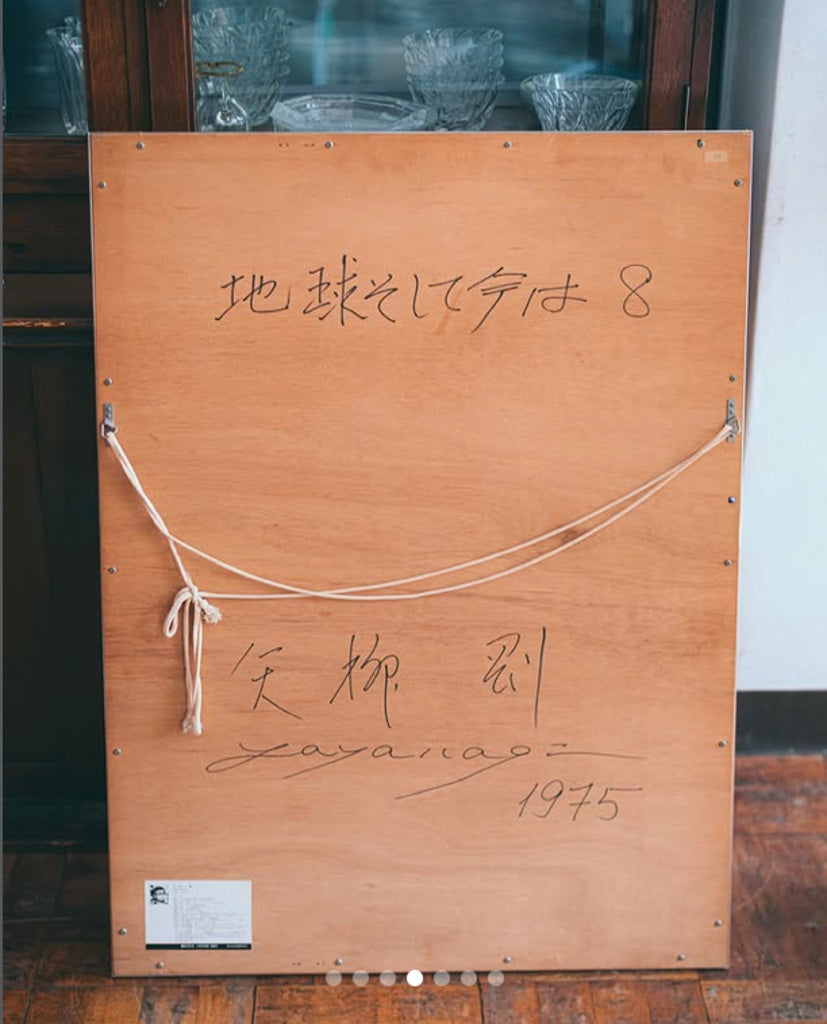 地球そして今は 8
矢柳 剛
yayanagi
1975